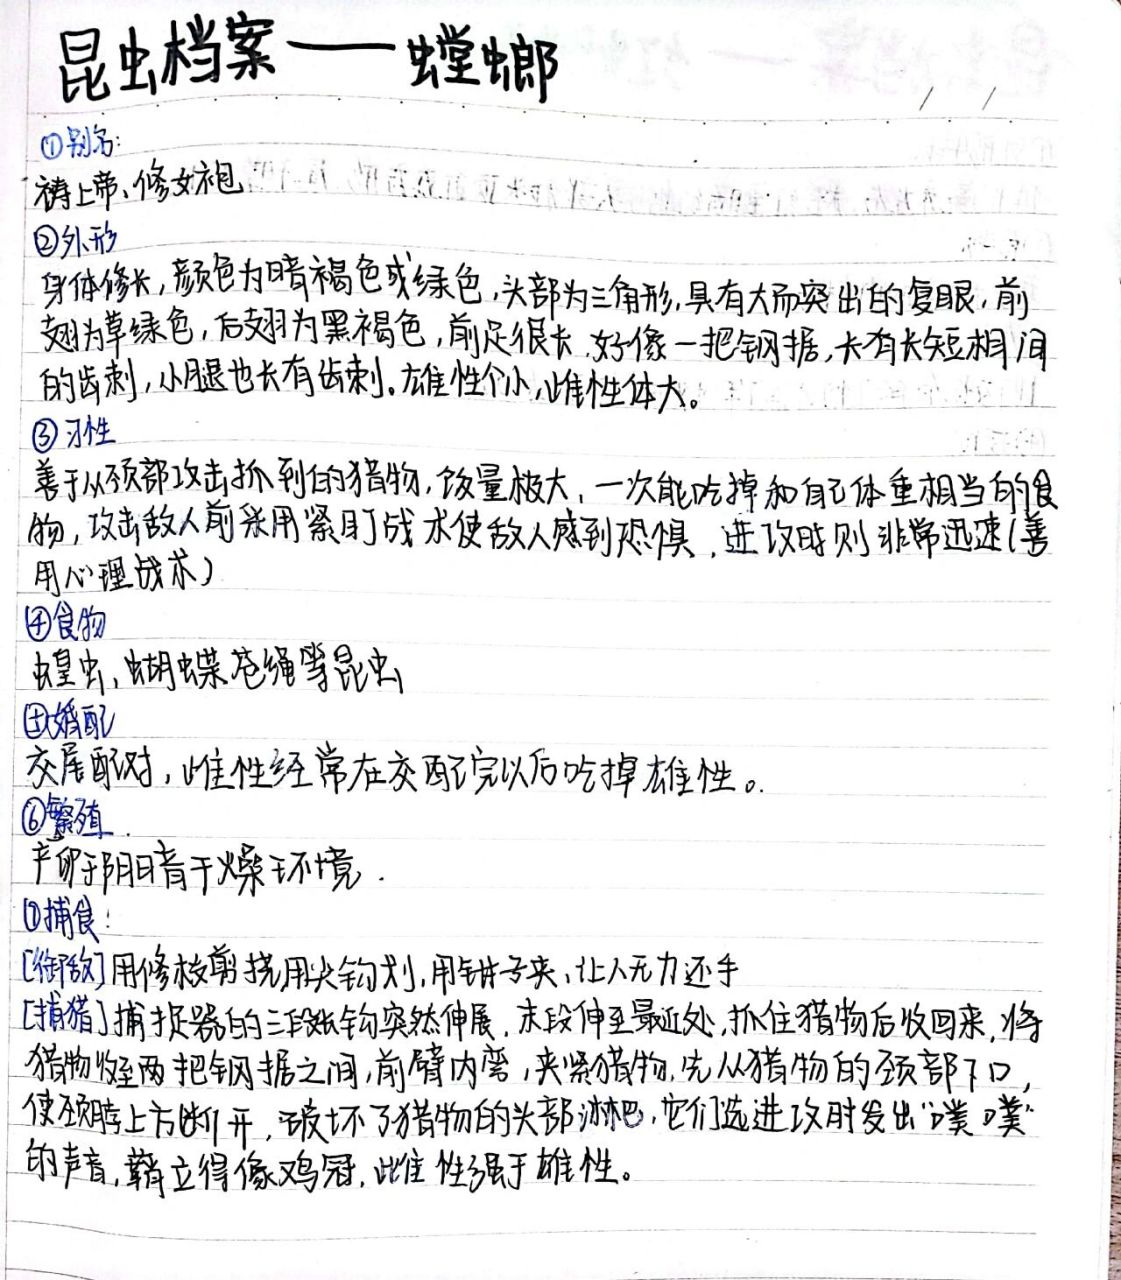 昆虫档案——螳螂
①别名:
祷上帝、修女袍
②外形
身体修长,颜色为暗褐色或绿色,头部为三角形,具有大而突出的复眼,前
翅为草绿色,后翅为黑褐色,前足很长,好像一把钢据,长有长短相间
的齿刺,小腿也长有齿刺。雄性个小,雌性体大。
③习性
善于从颈部攻击抓到的猎物,饭量极大,一次能吃掉和自己体重相当的食
物,攻击敌人前采用紧盯战术使敌人感到恐惧,进攻时则非常迅速(善
用心理战术)
④食物
蝗虫,蝴蝶苍绳等昆虫
⑤婚配
交尾配对,雌性经常在交配完以后吃掉雄性。
⑥繁殖
产卵于阴暗干燥环境.
⑦捕食:
[御敌]用修枝剪挠,用尖钩划,用钳子夹,让人无力还手
[捕猎]捕捉器的三段钩突然伸展,末段伸至最近处,抓住猎物后收回来,将
猎物收至两把钢据之间,前臂内弯,夹紧猎物,先从猎物的颈部下口,
使颈脖上方断开,破坏了猎物的头部淋巴,它们选进攻时发出"噗噗"
的声音,鞘立得像鸡冠,雌性强于雄性。